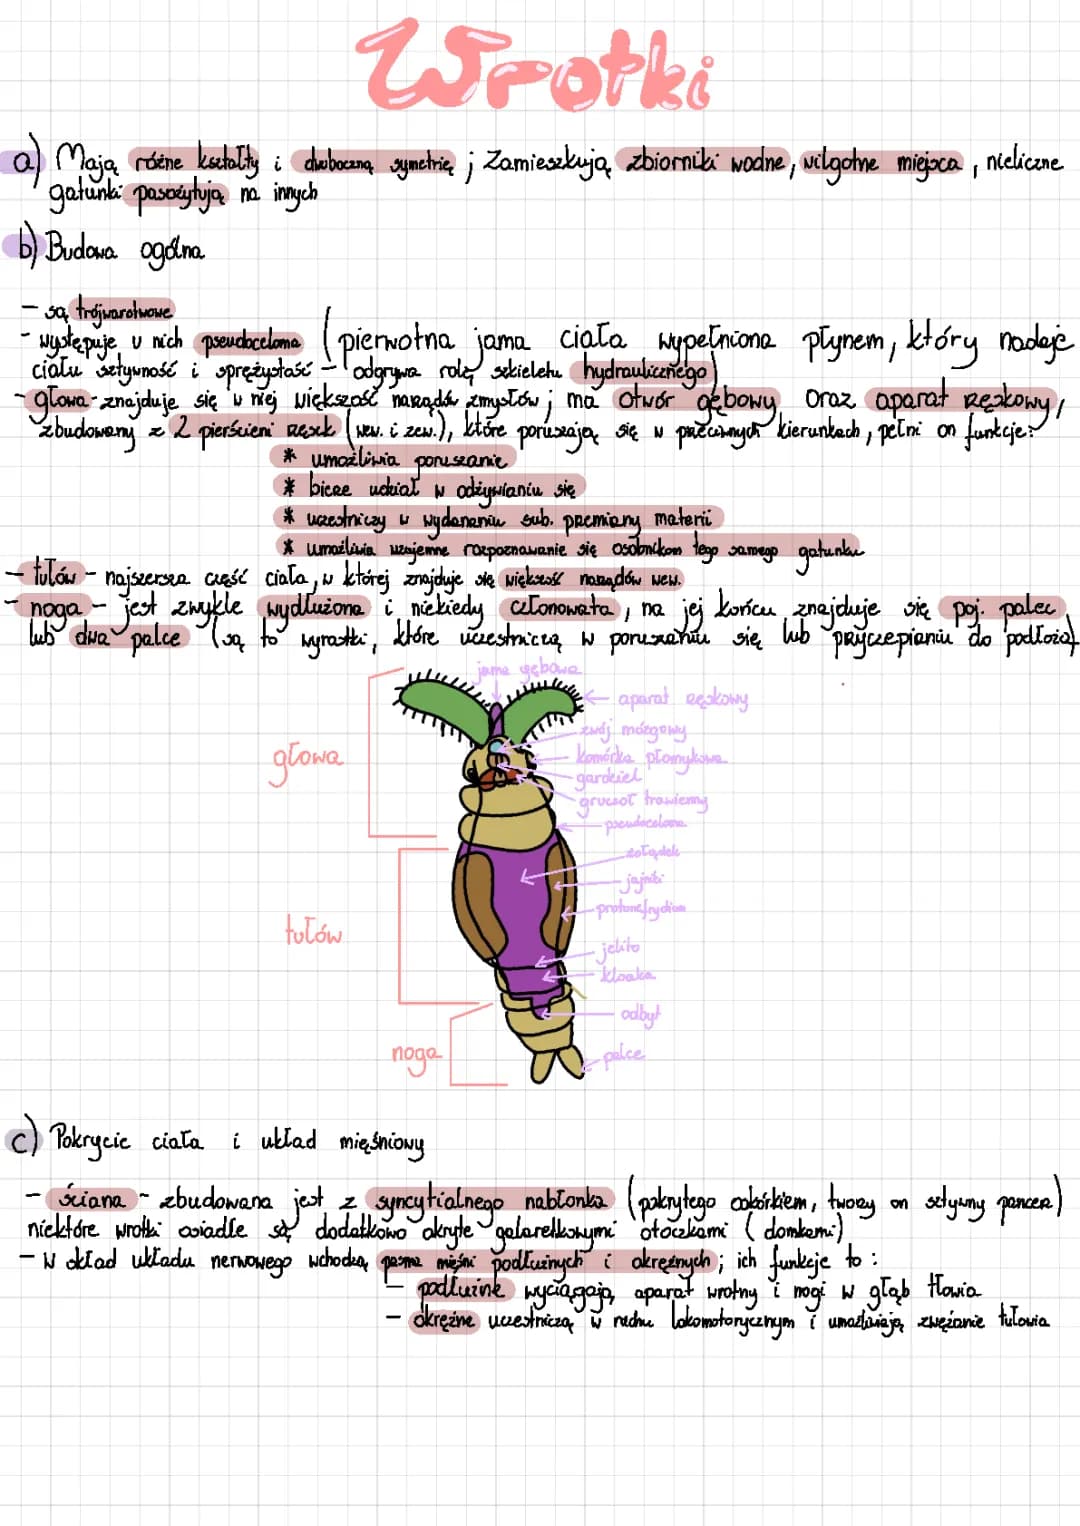 Wrotki
a) Mają różne kształty i dwuboczną symetrię ; Zamieszkują zbiorniki wodne, wilgotne miejsca , nieliczne
gatunki pasożytują na innych
b) Budowa ogólna
- są trójwarstwowe
- występuje u nich pseudoceloma (pierwotna jama ciała wypełniona płynem, który nadaje
ciału sztywność i sprężystość - odgrywa rolę szkieletu hydraulicznego)
- głowa - znajduje się w niej większość narządów zmysłów ; ma otwór gębowy oraz aparat rzęskowy,
zbudowany z 2 pierścieni rzęsek (wew. i zew.), które poruszają się w przeciwnych kierunkach, pełni on funkcje:
* umożliwia poruszanie
* bierze udział w odżywianiu się
* uczestniczy w wydalaniu sub. przemiany materii
* umożliwia wzajemne rozpoznawanie się osobnikom tego samego gatunku
- tułów - najszersza część ciała, w której znajduje się większość narządów wew.
- noga - jest zwykle wydłużona i niekiedy członowata, na jej końcu znajduje się poj. palec
lub dwa palce (są to wyrostki, które uczestniczą w poruszaniu się lub przyczepianiu do podłoża)
jama gębowa
aparat rzęskowy
zwój mózgowy
głowa
komórka płomykowa
gardziel
gruczoł trawienny
pseudoceloma
żołądek
jajniki
protonefrydium
tułów
jelito
kloaka
odbyt
noga
palce
c) Pokrycie ciała i układ mięśniowy
- ściana - zbudowana jest z syncytialnego nabłonka (pokrytego oskórkiem, tworzy on sztywny pancerz)
niektóre wrotki osiadłe są dodatkowo okryte galaretkowymi otoczkami (domkami)
- W skład układu nerwowego wchodzą pasma mięśni podłużnych i okrężnych ; ich funkcje to :
- podłużne wyciągają aparat wrotny i nogi w głąb tłowia
- okrężne uczestniczą w ruchu lokomotorycznym i umożliwiają zwężanie tułowia